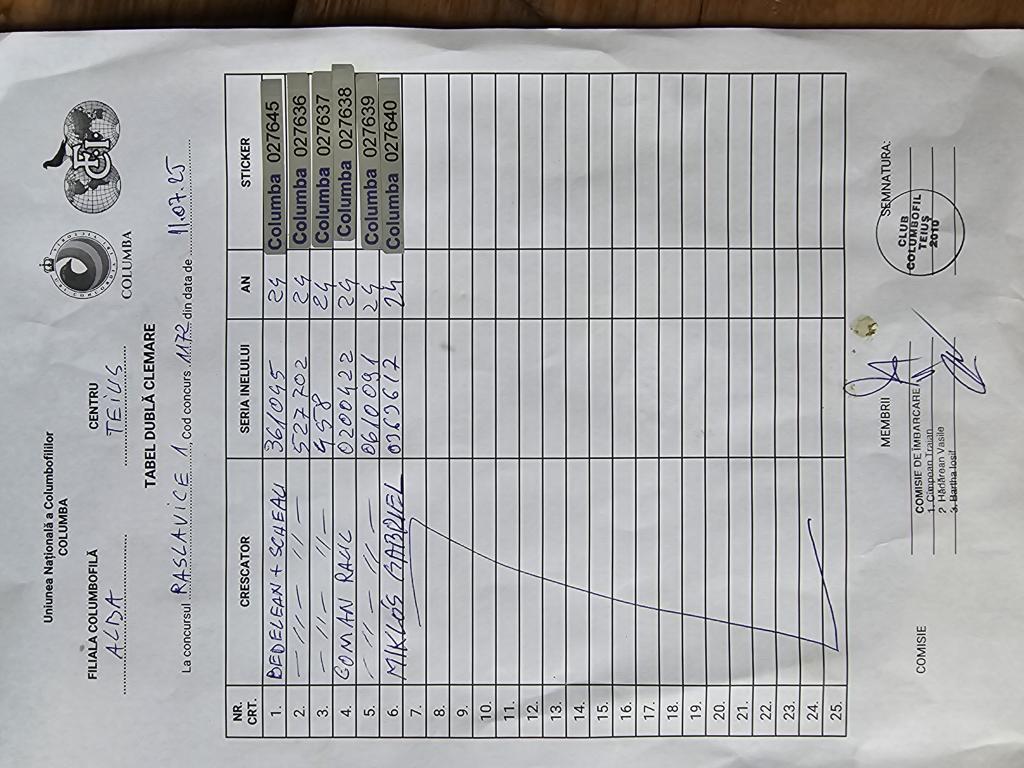 Uniunea Națională a Columbofililor
COLUMBA
COLUMBA
FILIALA COLUMBOFILĂ CENTRU
ALBA TEIUȘ
TABEL DUBLĂ CLEMARE
La concursul RASLAVICE 1, Cod concurs 1172 din data de 11.07.25
NR. CRT. CRESCATOR SERIA INELULUI AN STICKER
1. BEDELEAN + SCHEAU 361045 24 Columba 027645
2. — 〃 — 〃 — 527702 24 Columba 027636
3. — 〃 — 〃 — 958 24 Columba 027637
4. COMAN RAUL 0200422 24 Columba 027638
5. — 〃 — 〃 — 0610091 24 Columba 027639
6. MIKLÓS GABRIEL 24 Columba 027640
7.
8.
9.
10.
11.
12.
13.
14.
15.
16.
17.
18.
19.
20.
21.
22.
23.
24.
25.
COMISIE MEMBRII SEMNATURA:
COMISIE DE ÎMBARCARE
1. Cîmpean Traian
2 Hădărean Vasile
3. Bartha Iosif
CLUB
COLUMBOFIL
TEIUȘ
2010